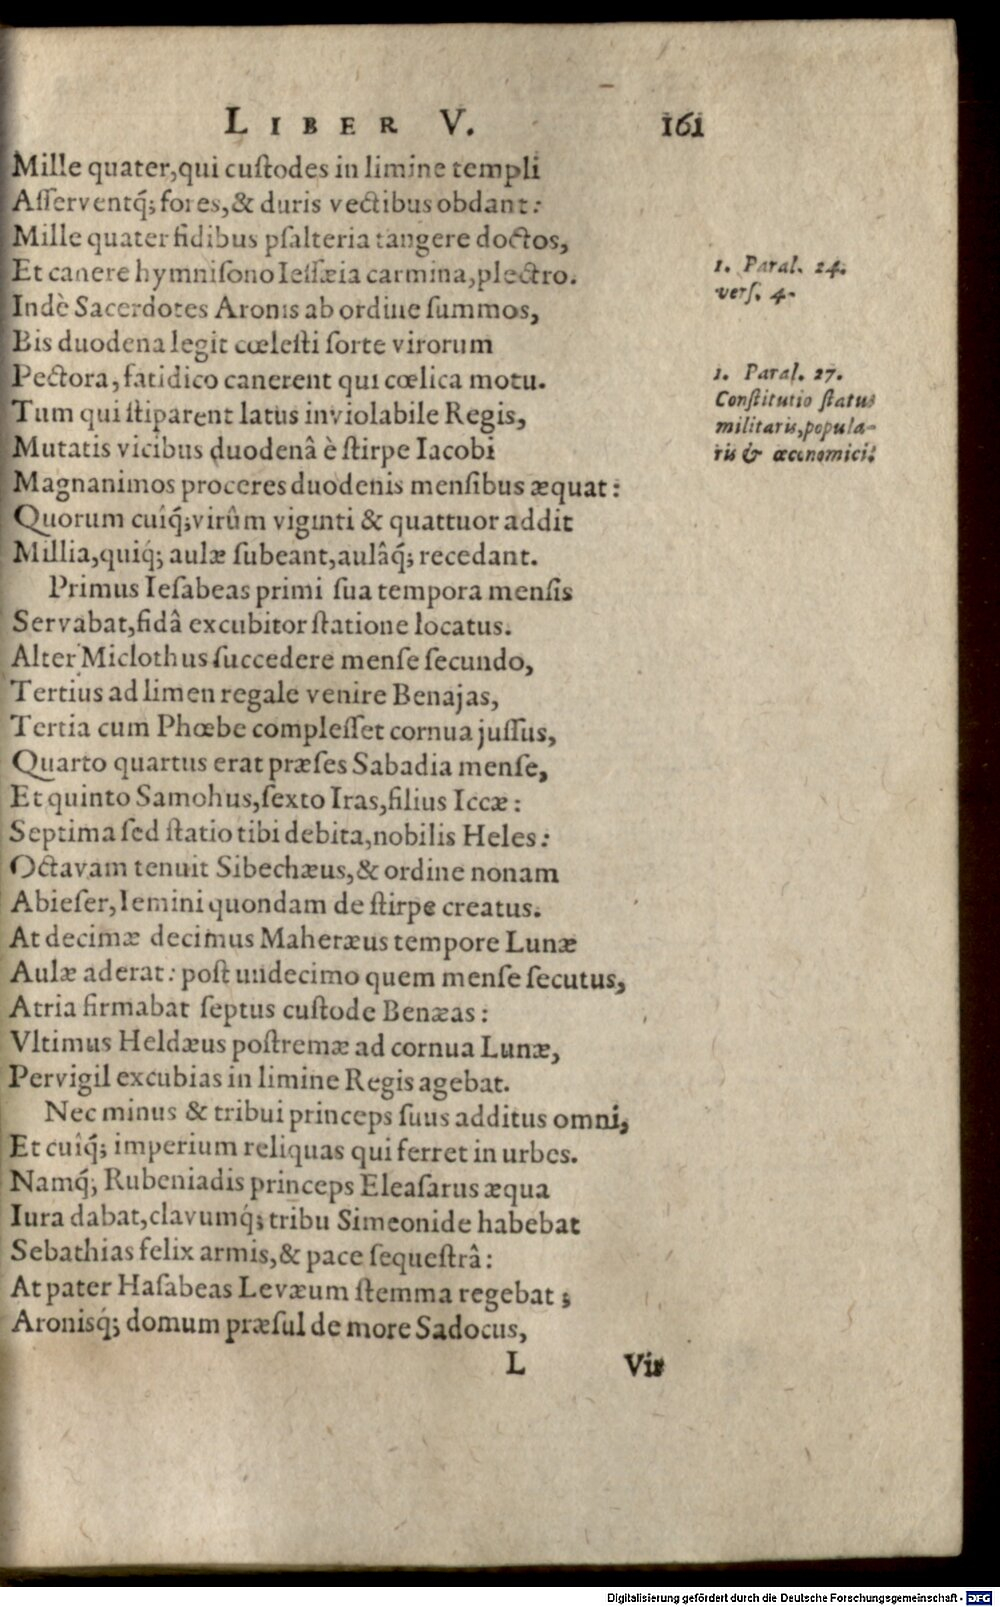 LIBER V. 161
Mille quater,qui cuſtodes in limine templi
Aſſerventq́; fores,& duris vectibus obdant:
Mille quater fidibus pſalteria tangere doctos,
Et canere hymniſono Ieſſæia carmina,plectro.
1. Paral. 24.
verſ. 4.
Indè Sacerdotes Aronis ab ordine ſummos,
Bis duodena legit cœleſti ſorte virorum
Pectora, fatidico canerent qui cœlica motu.
Tum qui ſtiparent latus inviolabile Regis,
Mutatis vicibus duodenâ è ſtirpe Iacobi
1. Paral. 27.
Conſtitutio ſtatus
militaris,popula-
ris & œconomici.
Magnanimos proceres duodenis menſibus æquat:
Quorum cuiq́;virûm viginti & quattuor addit
Millia,quiq́; aulæ ſubeant,aulâq́; recedant.
Primus Ieſabeas primi ſua tempora menſis
Servabat,fidâ excubitor ſtatione locatus.
Alter Miclothus ſuccedere menſe ſecundo,
Tertius ad limen regale venire Benajas,
Tertia cum Phœbe compleſſet cornua juſſus,
Quarto quartus erat præſes Sabadia menſe,
Et quinto Samohus,ſexto Iras,filius Iccæ:
Septima ſed ſtatio tibi debita,nobilis Heles:
Octavam tenuit Sibechæus,& ordine nonam
Abieſer,Iemini quondam de ſtirpe creatus.
At decimæ decimus Maheræus tempore Lunæ
Aulæ aderat: poſt undecimo quem menſe ſecutus,
Atria firmabat ſeptus cuſtode Benæas:
Vltimus Heldæus poſtremæ ad cornua Lunæ,
Pervigil excubias in limine Regis agebat.
Nec minus & tribui princeps ſuus additus omni,
Et cuiq́; imperium reliquas qui ferret in urbes.
Namq́; Rubeniadis princeps Eleaſarus æqua
Iura dabat,clavumq́; tribu Simeonide habebat
Sebathias felix armis,& pace ſequeſtrâ:
At pater Haſabeas Levæum ſtemma regebat;
Aronisq́; domum præſul de more Sadocus,
L Vir
Digitalisierung gefördert durch die Deutsche Forschungsgemeinschaft - DFG